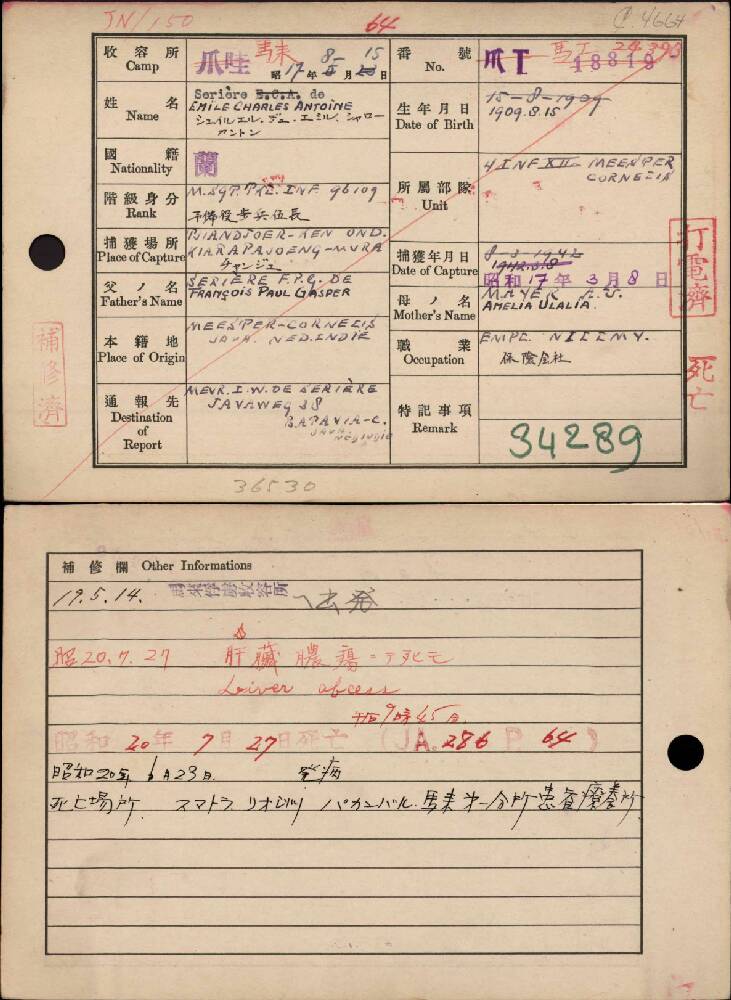 JN/150
64
C 4664
收容所 Camp
爪哇 馬来 昭17年 8月 15日
番號 No.
爪T 18819 馬T 24393
姓名 Name
Serière E.C.A. de
EMILE CHARLES ANTOINE
アントン
生年月日 Date of Birth
15-8-1909
1909.8.15
國籍 Nationality
蘭
階級身分 Rank
M.SGP.TKL.INF 96109
所屬部隊 Unit
4 INF XII MEESTER
CORNELIS
捕獲場所 Place of Capture
TJIANDJOER-KEN OND.
KIARAPAJOENG-MURA
チャンジュ
捕獲年月日 Date of Capture
8-3-1942
昭和17年3月8日
父ノ名 Father's Name
SERIERE F.P.G. DE
FRANÇOIS PAUL GASPER
母ノ名 Mother's Name
MAYER A.U.
AMELIA ULALIA.
本籍地 Place of Origin
MEESTER-CORNELIS
JAVA. NED.INDIE
職業 Occupation
EMPL. NILLMY.
保險会社
通報先 Destination of Report
MEVR. I.W. DE SERIERE
JAVAWEG 38
BATAVIA-C.
JAVA
NED INDIE
特記事項 Remark
34289
打電濟
死亡
補修濟
36530
補修欄 Other Informations
19.5.14. 馬来俘虜收容所ヘ出発
昭20.7.27 肝臓膿瘍ニテ死亡
Liver abcess
午后9時45分
昭和20年7月27日死亡 (JA.286 P. 64)
昭和20年6月23日 発病
死亡場所 スマトラ リオ州 パカンバル 馬来第一分所患者療養所